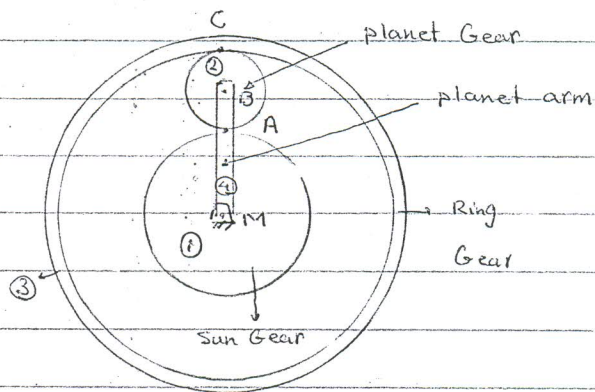 C
planet Gear
②
B
planet arm
A
④
M
Ring
①
Gear
③
Sun Gear